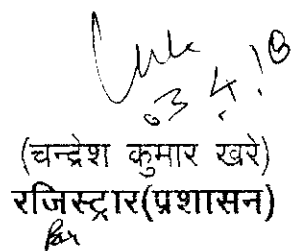 03.4.18
(चन्द्रेश कुमार खरे)
रजिस्ट्रार(प्रशासन)